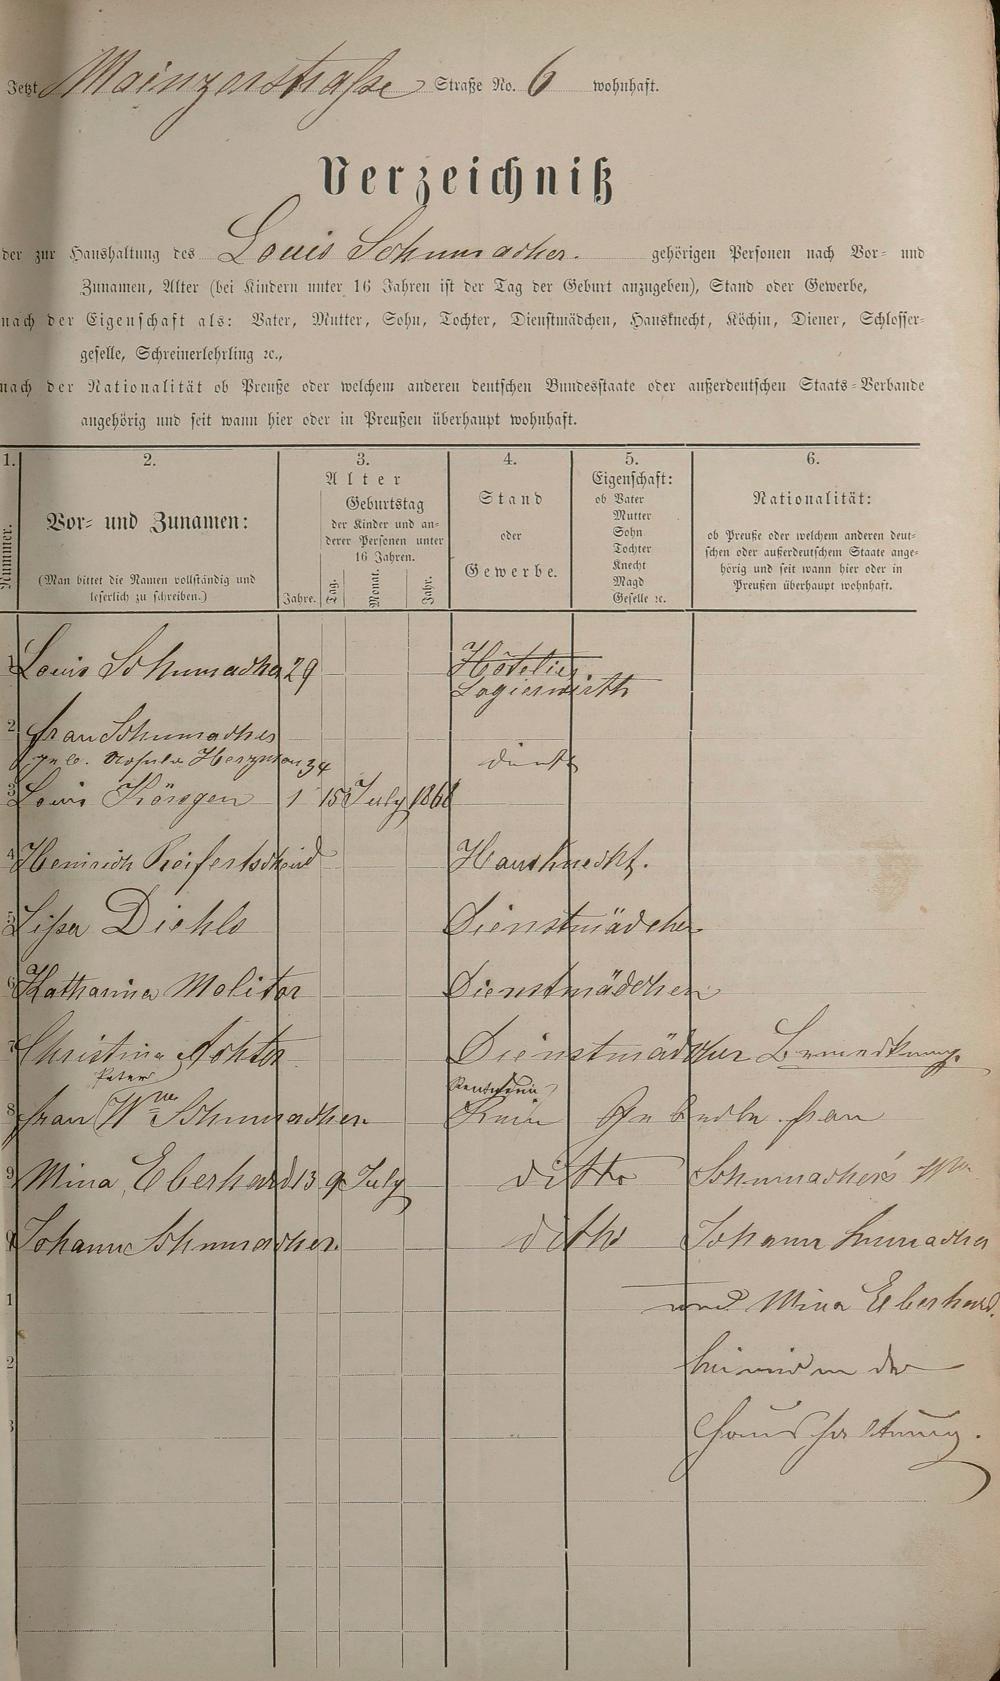 Jetzt Mainzerstraße Straße No. 6 wohnhaft.
Verzeichniß
der zur Haushaltung des Louis Schumacher. gehörigen Personen nach Vor- und
Zunamen, Alter (bei Kindern unter 16 Jahren ist der Tag der Geburt anzugeben), Stand oder Gewerbe,
nach der Eigenschaft als: Vater, Mutter, Sohn, Tochter, Dienstmädchen, Hausknecht, Köchin, Diener, Schlosser-
geselle, Schreinerlehrling ꝛc.,
nach der Nationalität ob Preuße oder welchem anderen deutschen Bundesstaate oder außerdeutschen Staats-Verbande
angehörig und seit wann hier oder in Preußen überhaupt wohnhaft.
1. 2. 3. 4. 5. 6.
Nummer.
Vor- und Zunamen:
(Man bittet die Namen vollständig und
leserlich zu schreiben.)
Alter
Geburtstag
der Kinder und an-
derer Personen unter
16 Jahren.
Jahre. Tag. Monat. Jahr.
Stand
oder
Gewerbe.
Eigenschaft:
ob Vater
Mutter
Sohn
Tochter
Knecht
Magd
Geselle ꝛc.
Nationalität:
ob Preuße oder welchem anderen deut-
schen oder außerdeutschem Staate ange-
hörig und seit wann hier oder in
Preußen überhaupt wohnhaft.
1 Louis Schumacher 29 Hôtelier
Logierwirth
2 frau Schumacher
geb. 34
3 Louis 1 15 July 1868
4 Heinrich Reifertscheid Hausknecht.
5 Dienstmädchen
6 Katharina Molitor Dienstmädchen
7 Christina Dienstmädchen Bemerkung.
Peter Rentnerin
8 frau Wwe Schumacher frau
9 Mina Eberhard 13 9 July ditto Schumacher's Wwe
Johann Schumacher. ditto Johann Schumacher
1 und Mina Eberhard.
2 der
3 Haushaltung.